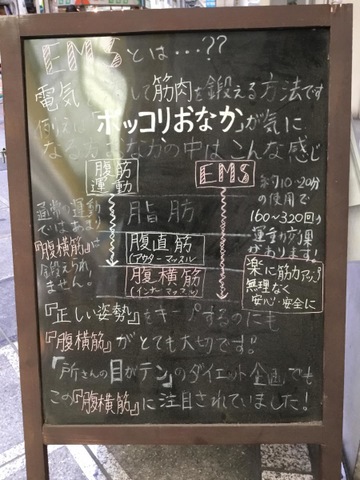 EMSとは…??
電気 して筋肉を鍛える方法です
例えば「ポッコリおなか」が気に
なる方 おなかの中はこんな感じ
腹筋
運動
EMS
通常の運動
ではあまり
『腹横筋』は
鍛えられ
ません。
脂肪
腹直筋
(アウターマッスル)
腹横筋
(インナーマッスル)
約10~20分
の使用で
160~320回の
運動効果
があります!
楽に筋力アップ
無理なく
安心・安全に
『正しい姿勢』をキープするのにも
『腹横筋』がとても大切です。
「所さんの目がテン」のダイエット企画でも
この『腹横筋』に注目されていました!